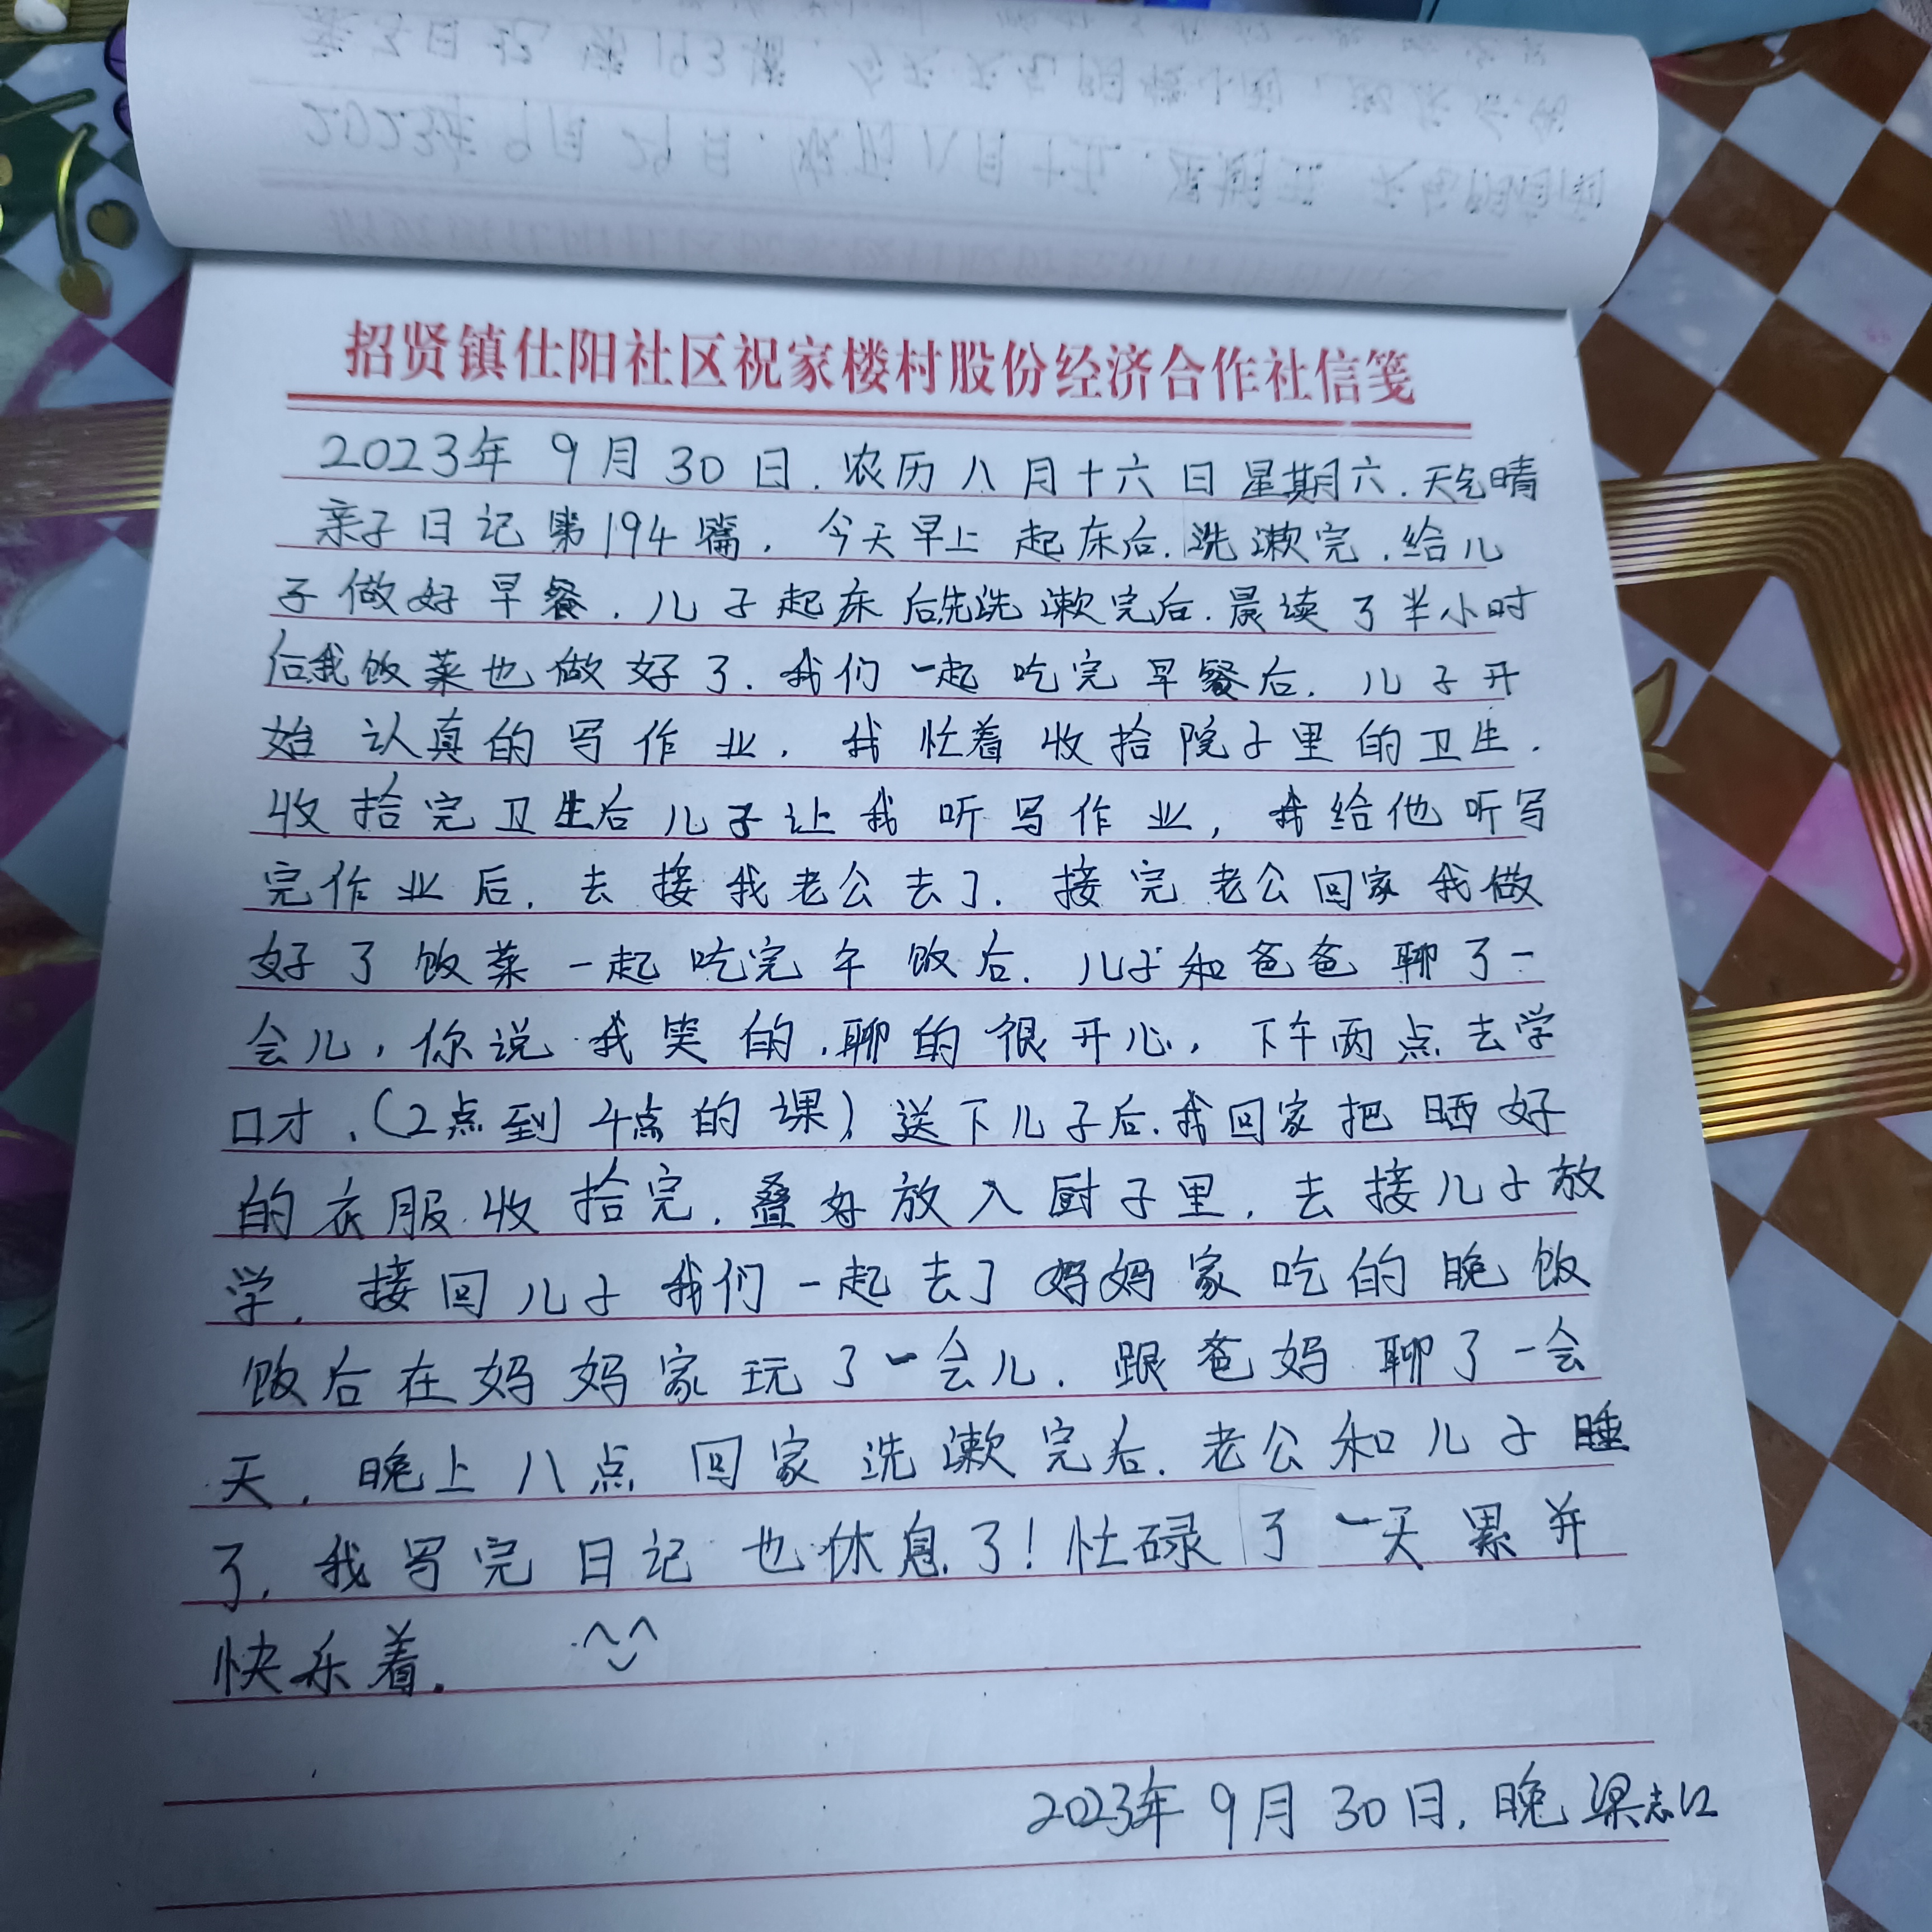 招贤镇仕阳社区祝家楼村股份经济合作社信笺
2023年 9月 30日. 农历八月十六日 星期六. 天气晴
亲子日记第194篇. 今天早上起床后. 洗漱完. 给儿
子做好早餐. 儿子起床后先洗漱完后. 晨读了半小时
后我饭菜也做好了. 我们一起吃完早餐后. 儿子开
始认真的写作业. 我忙着收拾院子里的卫生.
收拾完卫生后儿子让我听写作业, 我给他听写
完作业后. 去接我老公去了. 接完老公回家我做
好了饭菜一起吃完午饭后. 儿子和爸爸聊了一
会儿, 你说我笑的. 聊的很开心, 下午两点去学
口才. (2点到4点的课) 送下儿子后. 我回家把晒好
的衣服收拾完. 叠好放入厨子里. 去接儿子放
学. 接回儿子我们一起去了妈妈家吃的晚饭
饭后在妈妈家玩了一会儿. 跟爸妈聊了一会
天. 晚上八点回家洗漱完后. 老公和儿子睡
了. 我写完日记也休息了! 忙碌了一天累并
快乐着.
2023年 9月 30日. 晚 梁志江